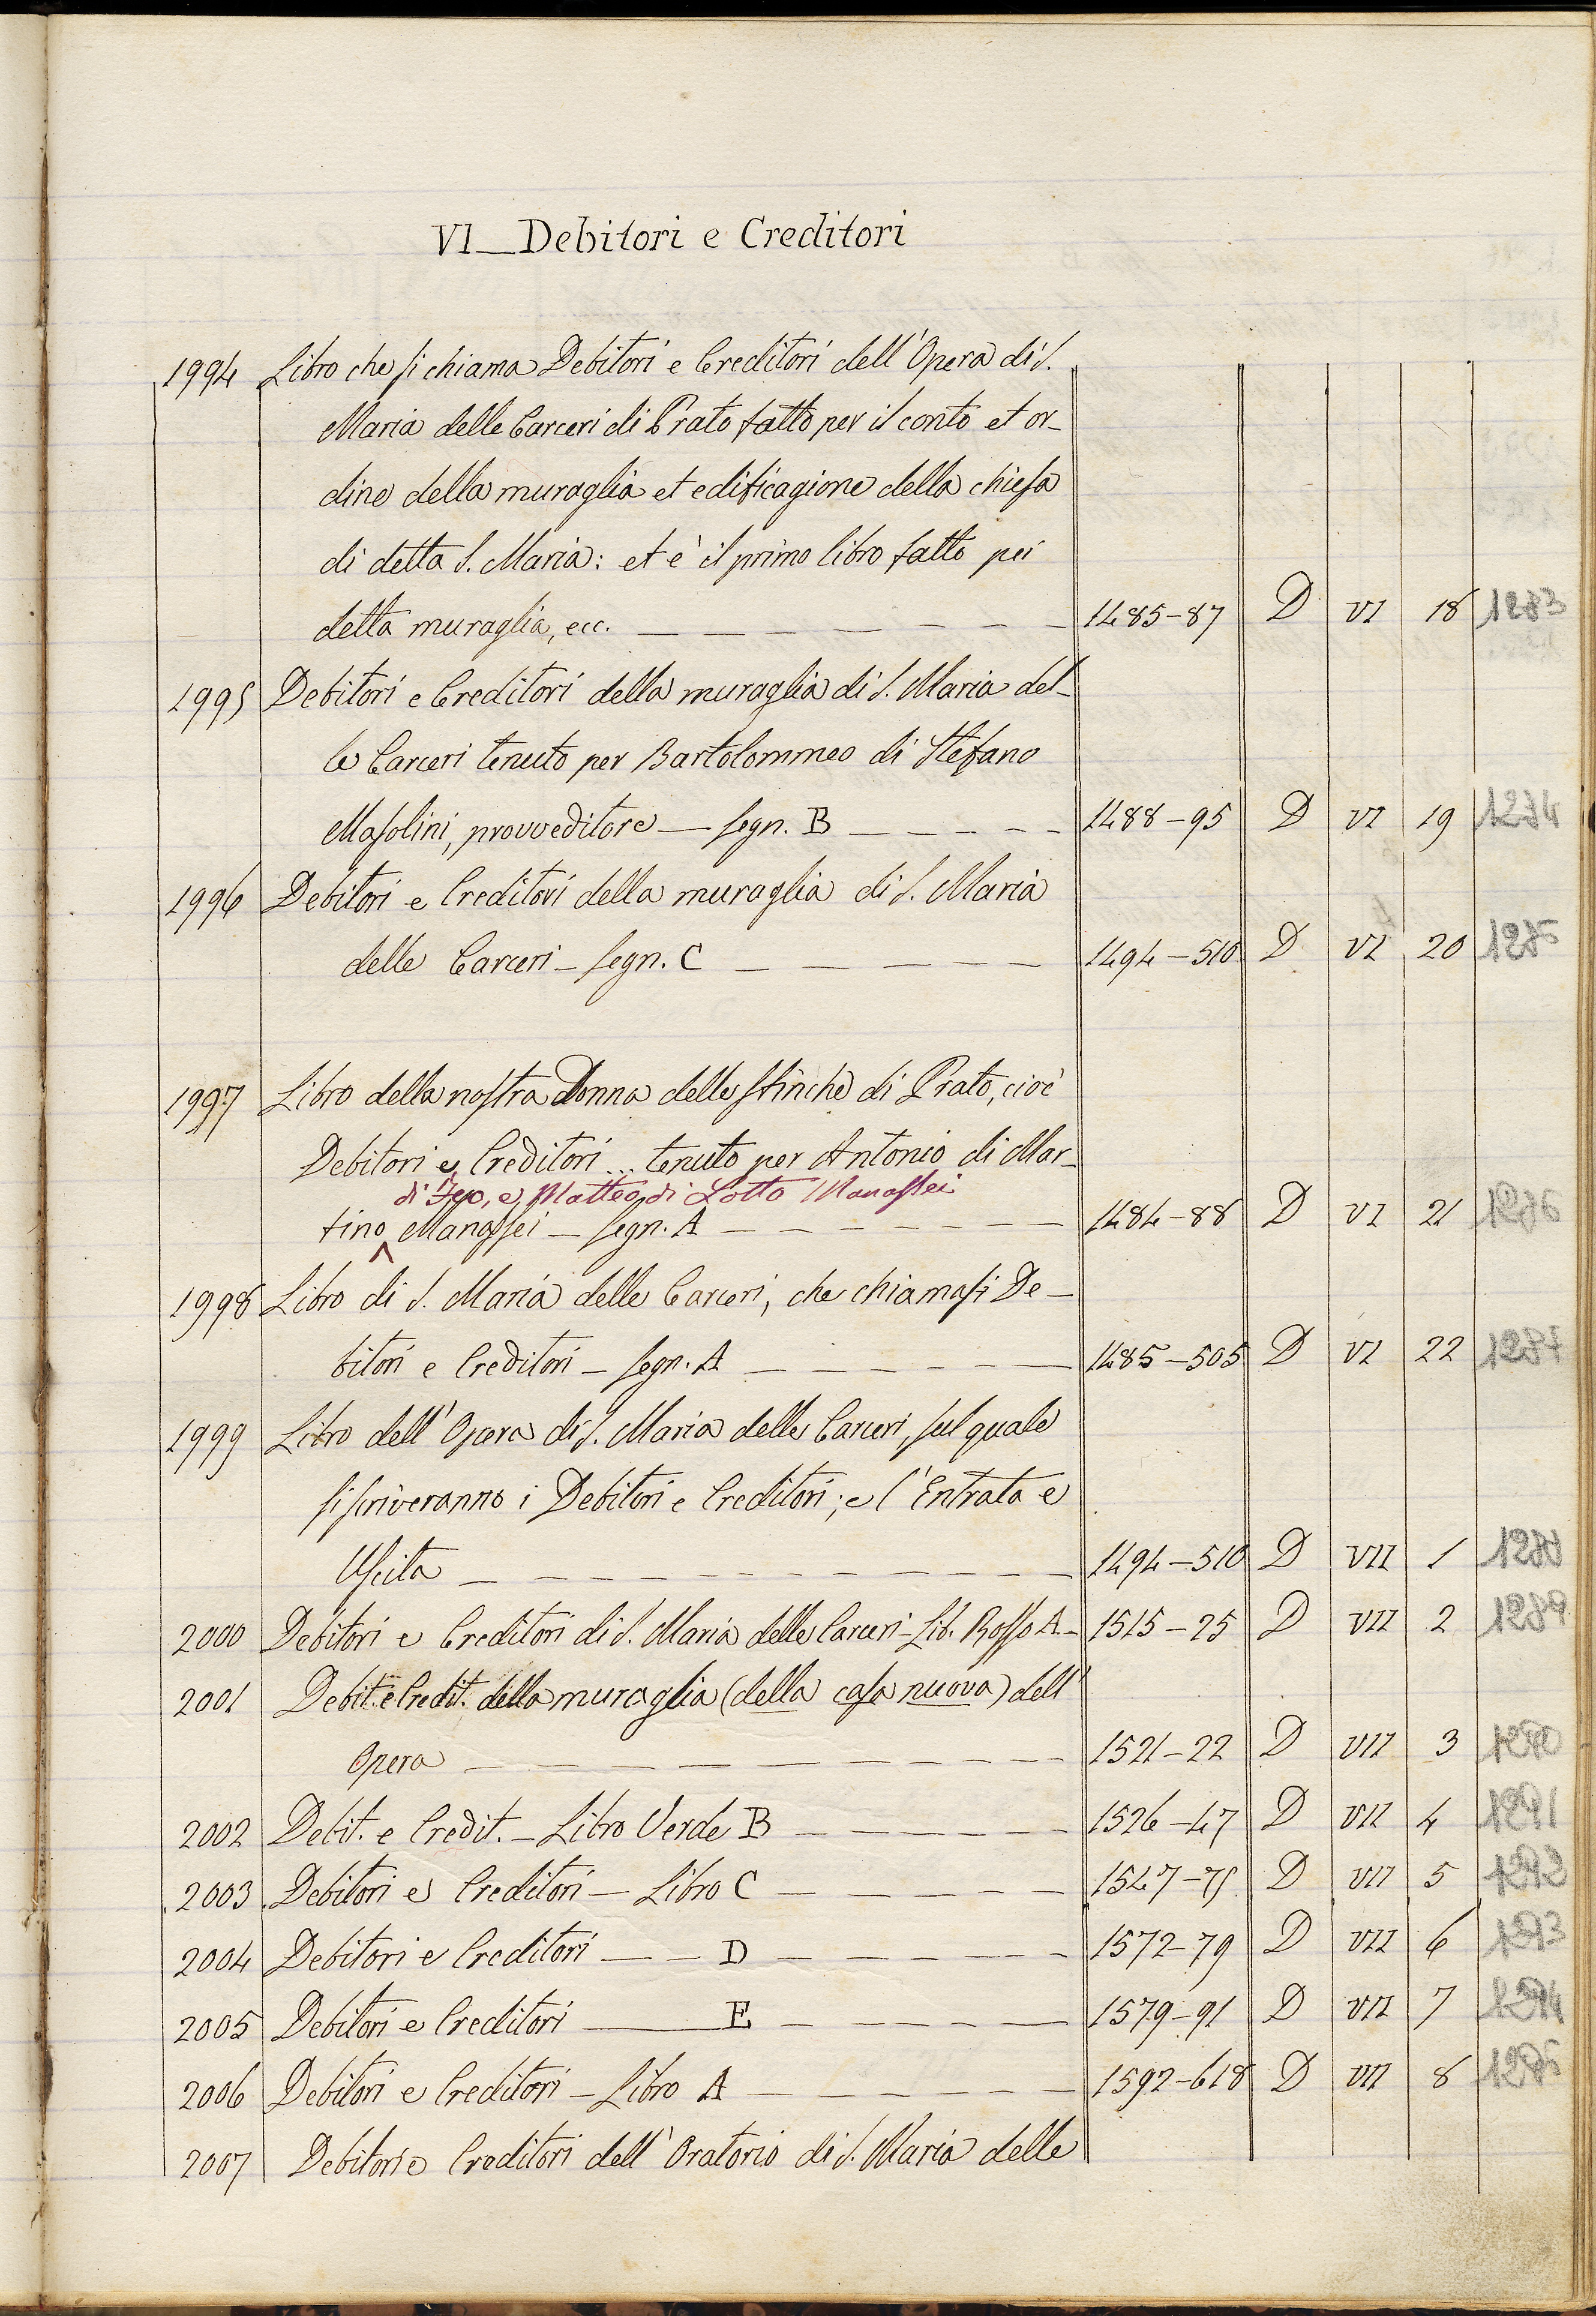 VI _ Debitori e Creditori
1994 Libro che si chiama Debitori e Creditori dell'Opera di S.
Maria delle Carceri di Prato fatto per il conto et or-
dine della muraglia et edificagione della chiesa
di detta S. Maria: et è il primo libro fatto per
detta muraglia, ecc. — — — — — — — 1485-87 D VI 18 1283
1995 Debitori e Creditori della muraglia di S. Maria del-
le Carceri tenuto per Bartolommeo di Stefano
Masolini, provveditore — segn. B — — — — 1488-95 D VI 19 1284
1996 Debitori e Creditori della muraglia di S. Maria
delle Carceri — segn. C — — — — — 1494-510 D VI 20 1285
1997 Libro della nostra Donna delle Stinche di Prato, cioè
Debitori e Creditori ... tenuto per Antonio di Mar-
di Jco, e Matteo di Lotto Manassei
tino Manassei — segn. A — — — — — — 1484-88 D VI 21 1286
1998 Libro di S. Maria delle Carceri, che chiamasi De-
bitori e Creditori — segn. A — — — — — 1485-505 D VI 22 1287
1999 Libro dell'Opera di S. Maria delle Carceri, sul quale
si scriveranno i Debitori e Creditori; e l'Entrata e
Uscita — — — — — — — — — — 1494-510 D VII 1 1288
2000 Debitori e Creditori di S. Maria delle Carceri - Lib. Rosso A - 1515-25 D VII 2 1289
2001 Debit. e Credit. della muraglia (della casa nuova) dell'
Opera — — — — — — — — — 1521-22 D VII 3 1290
2002 Debit. e Credit. — Libro Verde B — — — — — 1526-47 D VII 4 1291
2003 Debitori e Creditori — Libro C — — — — — 1547-71 D VII 5 1292
2004 Debitori e Creditori — — D — — — — — 1572-79 D VII 6 1293
2005 Debitori e Creditori — E — — — — — 1579-91 D VII 7 1294
2006 Debitori e Creditori — Libro A — — — — — 1592-618 D VII 8 1295
2007 Debitori e Creditori dell'Oratorio di S. Maria delle